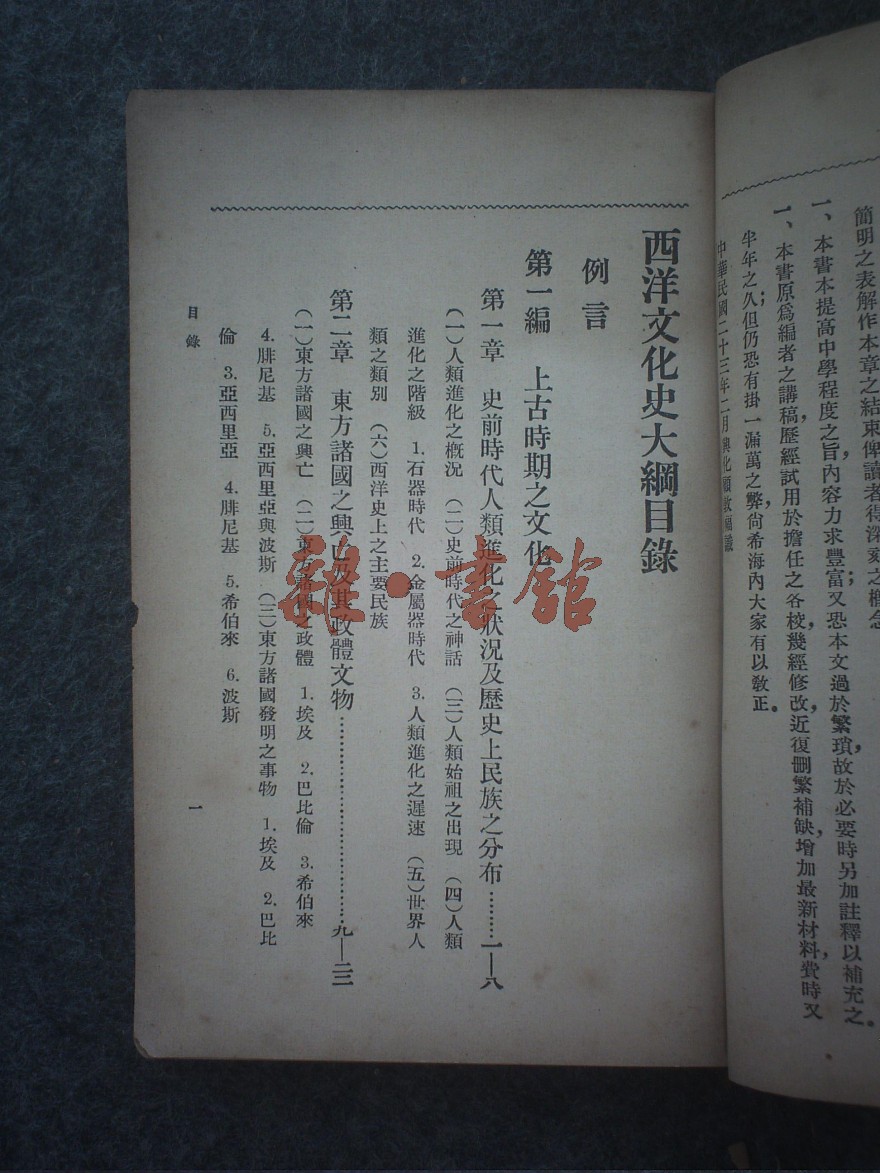 簡明之表解作本章之結束俾讀者得深刻之概念
一、本書本提高中學程度之旨，內容力求豐富；又恐本文過於繁瑣，故於必要時另加註釋以補充之。
一、本書原爲編者之講稿，歷經試用於擔任之各校，幾經修改，近復刪繁補缺，增加最新材料，費時又
半年之久；但仍恐有掛一漏萬之弊，尙希海內大家有以敎正。
中華民國二十三年二月興化顧敦福識
西洋文化史大綱目錄
例言
第一編　上古時期之文化
第一章　史前時代人類進化之狀況及歷史上民族之分布………一—八
（一）人類進化之槪況　（二）史前時代之神話　（三）人類始祖之出現　（四）人類
進化之階級　1.石器時代　2.金屬器時代　3.人類進化之遲速　（五）世界人
類之類別　（六）西洋史上之主要民族
第二章　東方諸國之興亡及其政體文物……………………九—二二
（一）東方諸國之興亡　（二）東方諸國之政體　1.埃及　2.巴比倫　3.希伯來
4.腓尼基　5.亞西里亞與波斯　（三）東方諸國發明之事物　1.埃及　2.巴比
倫　3.亞西里亞　4.腓尼基　5.希伯來　6.波斯
目錄
一
雜·書館